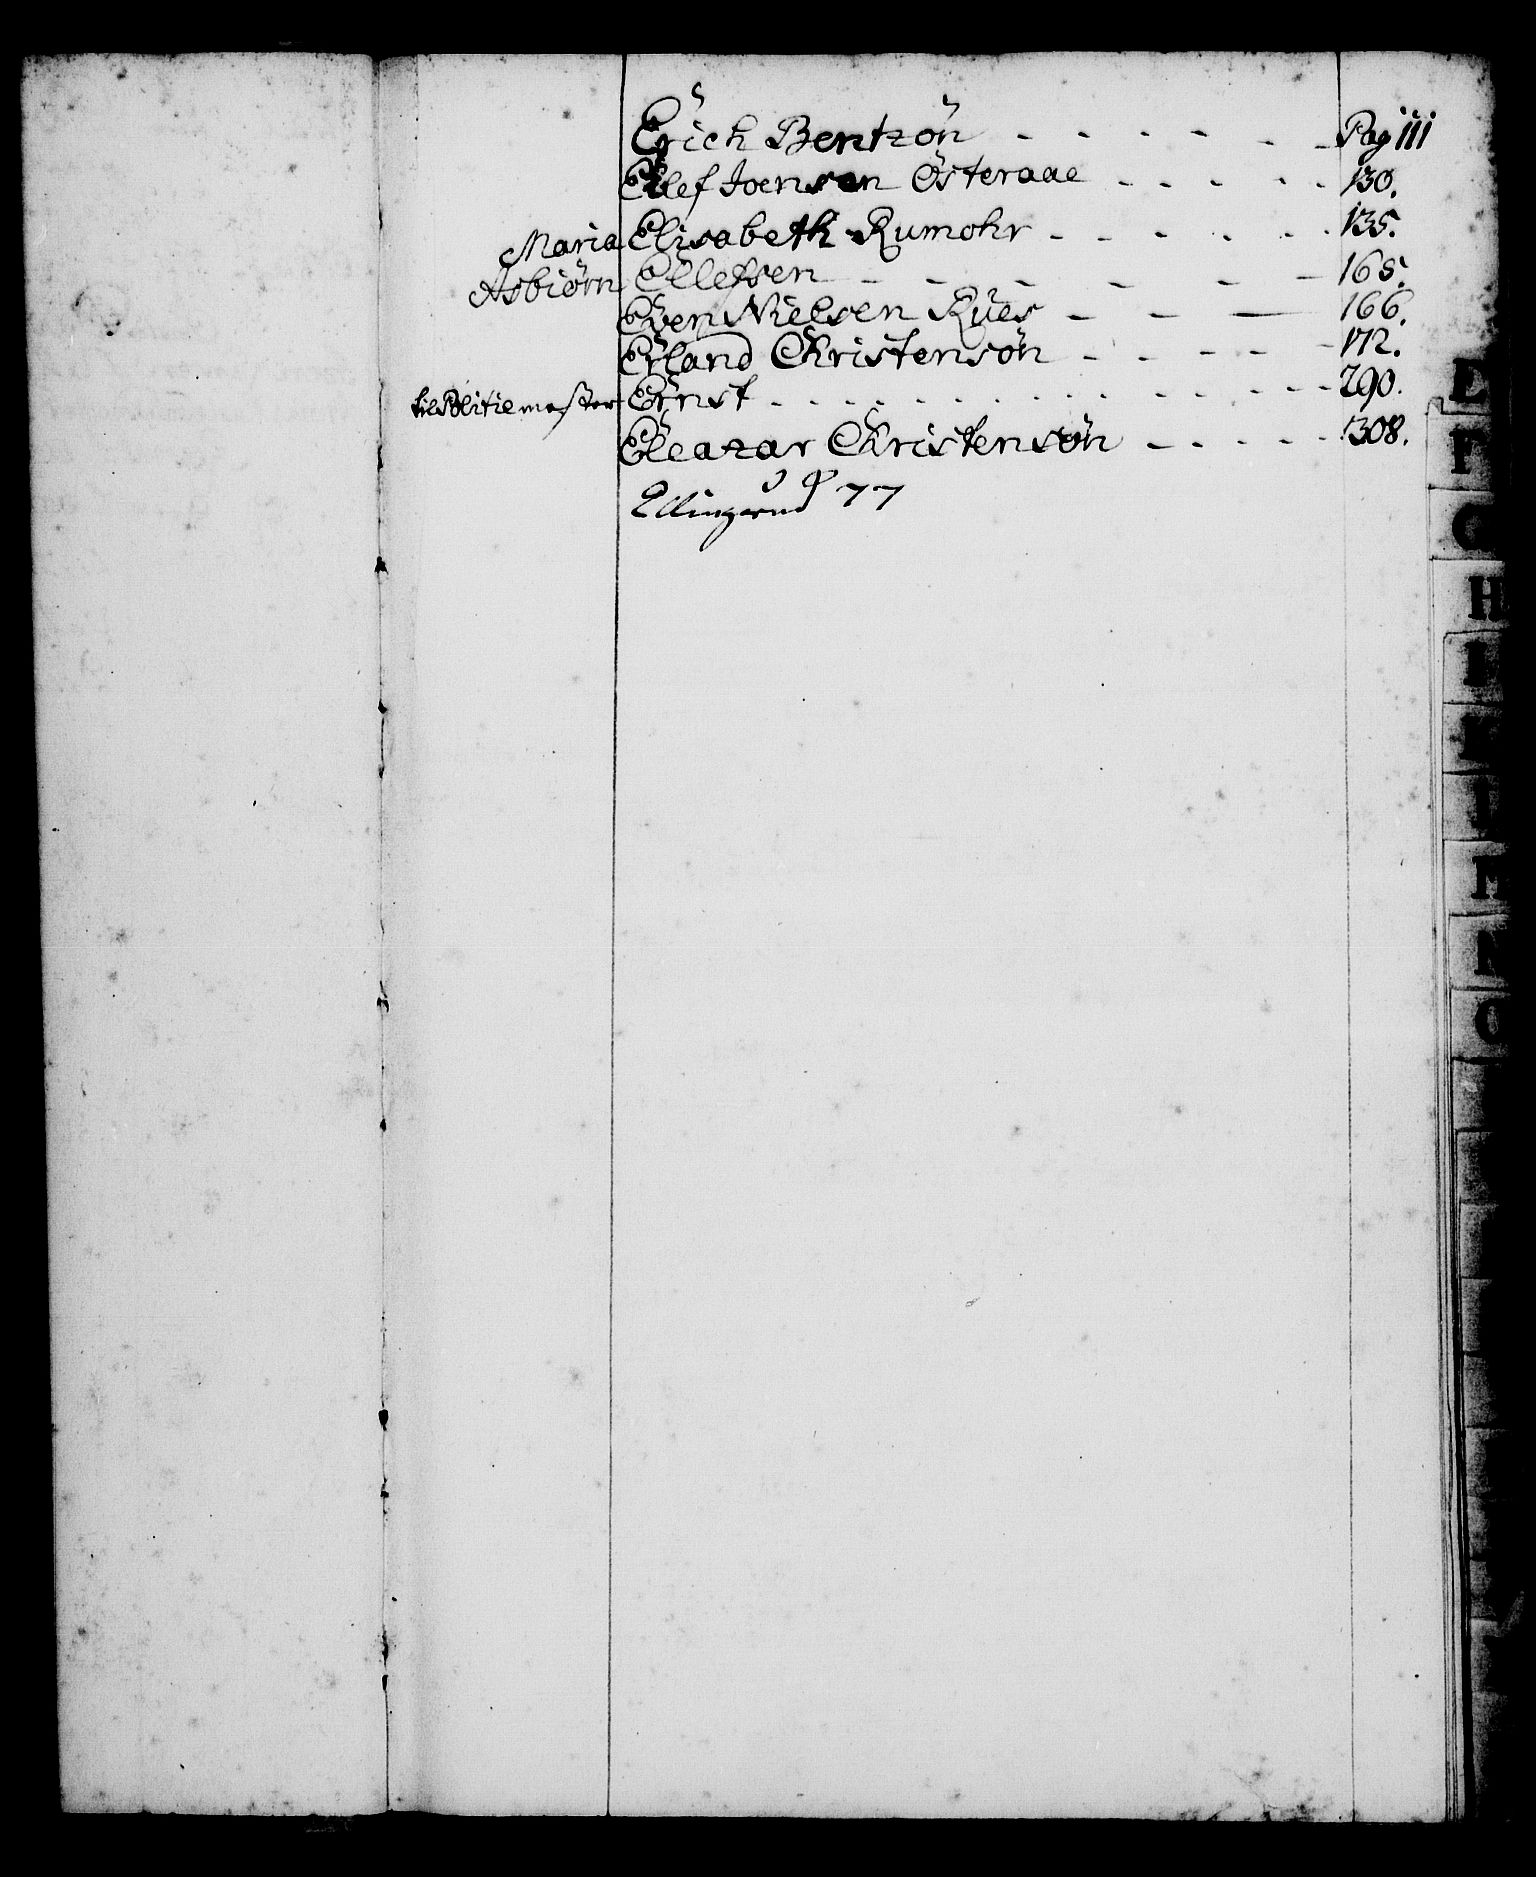 Erich Bentzön - - - - - - Pag 111
Ellef Joensen Østeraae - - - - - 130.
Maria Elisabeth Rumohr - - - - - - 135.
Asbiörn Ellefsen - - - - - - 165.
Even Nielsen Rües - - - 166.
Erland Christensön - - - - - 172.
til Politiemester Ernst - - - - - - - - - - - - 290.
Eleazar Christensön - - - - - 308.
77
E
F
G
H
M
O